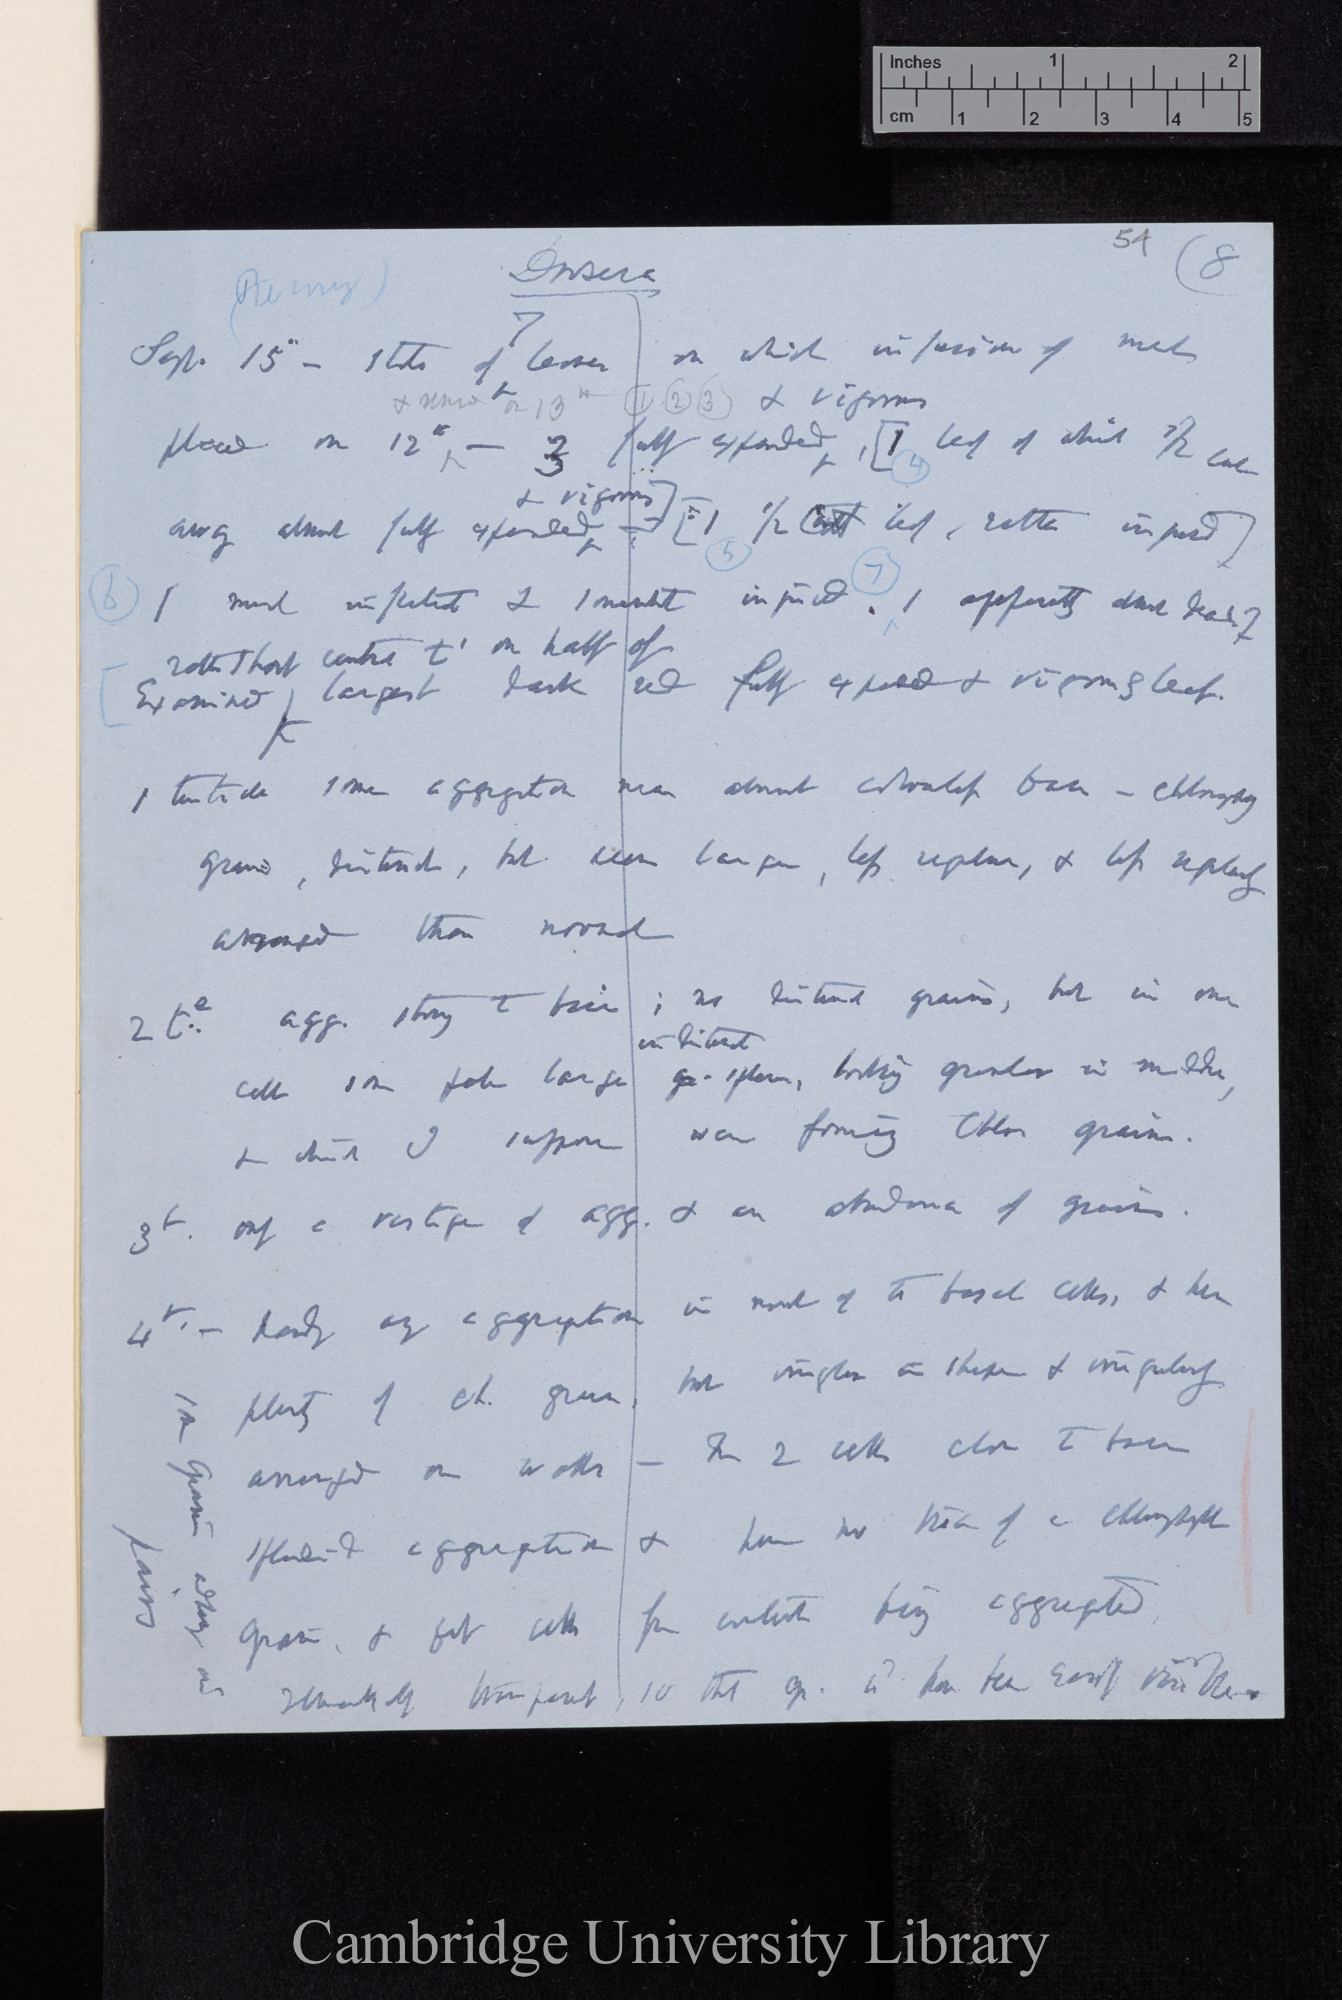 Inches 1 2
cm 1 2 3 4 5
54 (8
Drosera
7
Sept. 15th — State of leaves on which infusion of meat
on 13th (1) (2) (3) & vigorous
placed on 12th — 3 fully expanded, [1 leaf of which 1/2 cut
(4)
& vigorous]
away almost fully expanded — [1 1/2 leaf, rather injured]
(5)
(6) 1 much inflected & somewhat injured. (7) 1 apparently almost dead?
rather short central t. on half of
[Examined largest dark red fully expanded & vigorous leaf.
1 tentacle some aggregation near almost colourless base — chlorophyll
grains, distinct, but seem larger, less regular, & less regularly
arranged than normal
2 t. agg. strong to base; no distinct grains, but in one
indistinct
cell some pale large gr. spheres, looking granular in middle,
& which I suppose were forming Chlor grains.
3 t. only a vestige of agg. & an abundance of grains.
4 t. — hardly any aggregation in most of the basal cells, & here
plenty of ch. grains, but irregular in shape & irregularly
arranged on walls — The 2 cells close to base
splendid aggregation & have no trace of a chlorophyll
grain, & cells from contents being aggregated,
remarkably transparent, so that gr. if have been easily visible
some grains adhering in
pairs
Cambridge University Library